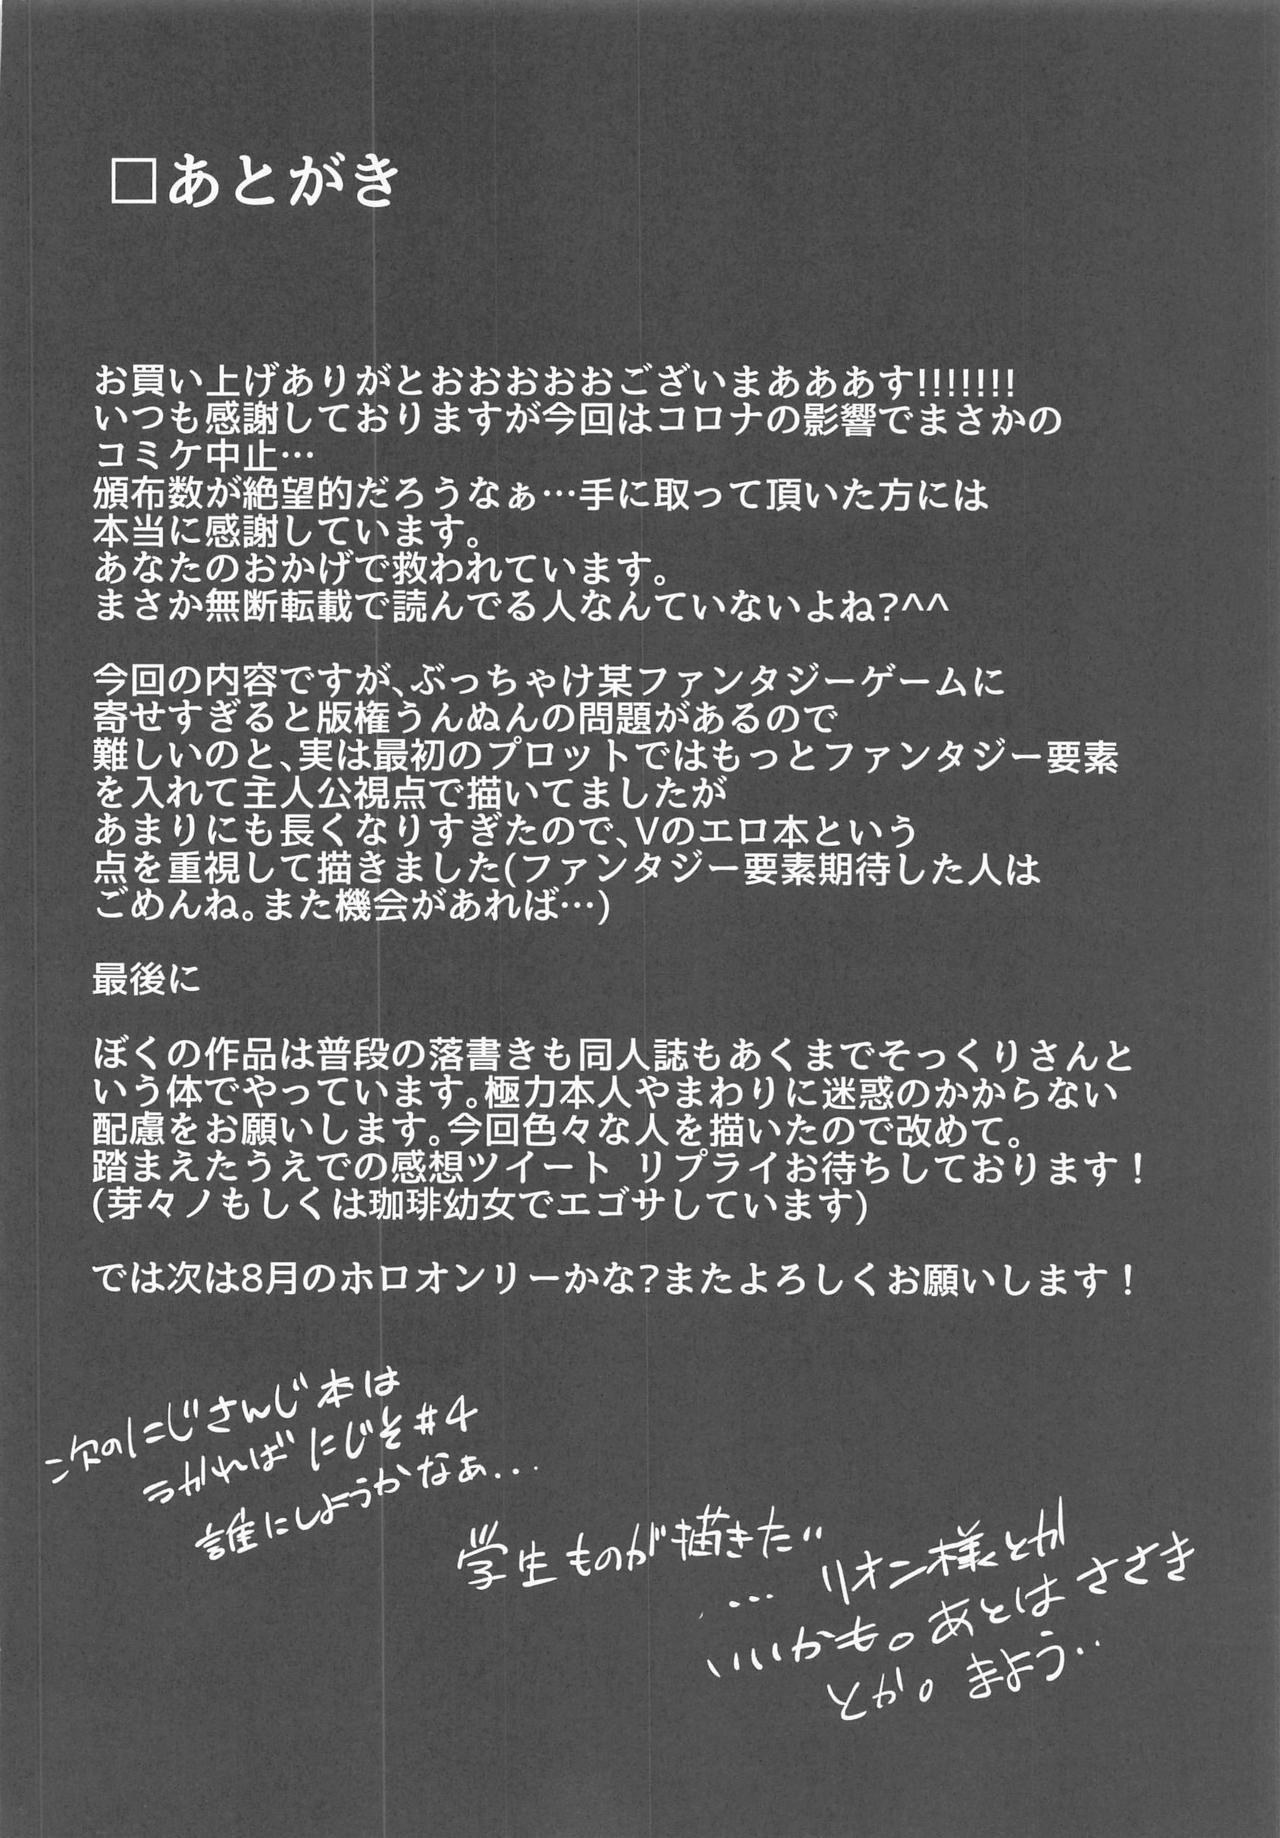 □あとがき
お買い上げありがとおおおおおございまあああす!!!!!!!
いつも感謝しておりますが今回はコロナの影響でまさかの
コミケ中止…
頒布数が絶望的だろうなぁ…手に取って頂いた方には
本当に感謝しています。
あなたのおかげで救われています。
まさか無断転載で読んでる人なんていないよね?^^
今回の内容ですが、ぶっちゃけ某ファンタジーゲームに
寄せすぎると版権うんぬんの問題があるので
難しいのと、実は最初のプロットではもっとファンタジー要素
を入れて主人公視点で描いてましたが
あまりにも長くなりすぎたので、Vのエロ本という
点を重視して描きました(ファンタジー要素期待した人は
ごめんね。また機会があれば…)
最後に
ぼくの作品は普段の落書きも同人誌もあくまでそっくりさんと
いう体でやっています。極力本人やまわりに迷惑のかからない
配慮をお願いします。今回色々な人を描いたので改めて。
踏まえたうえでの感想ツイート リプライお待ちしております!
(芽々ノもしくは珈琲幼女でエゴサしています)
では次は8月のホロオンリーかな?またよろしくお願いします!
次のにじさんじ本は
うかればにじそ#4
誰にしようかなぁ...
学生ものが描きたい
... リオン様とか
いいかも。あとはささき
とか。まよう..